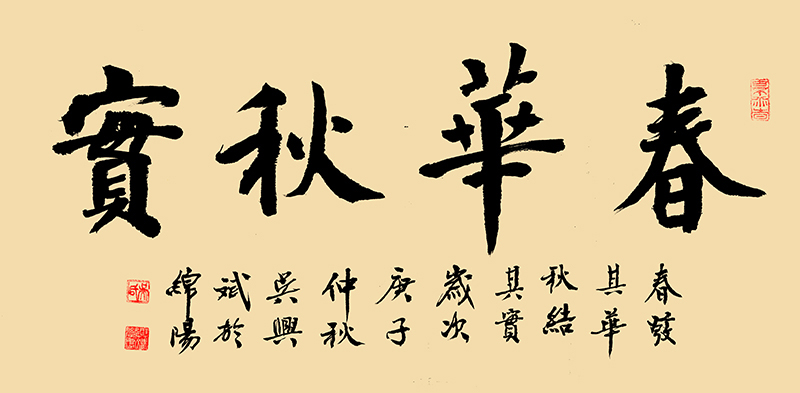 春華秋實
春發
其華
秋結
其實
歲次
庚子
仲秋
吳興
斌於
綿陽